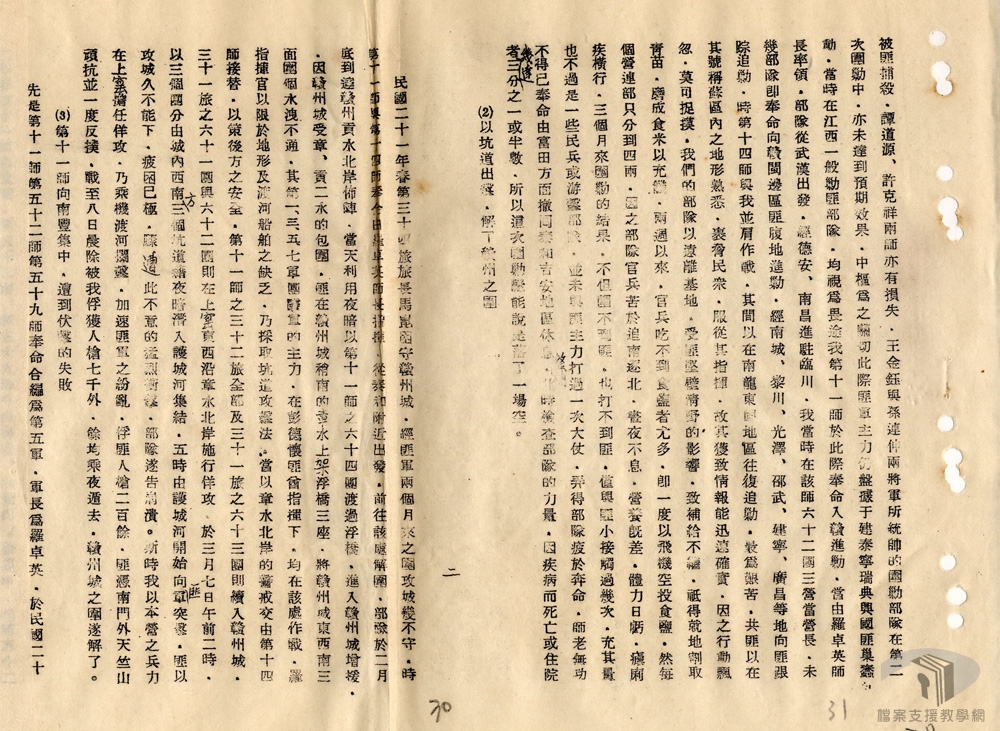 被匪捕殺・譚道源、許克祥兩師亦有損失・王金鈺與孫連仲兩將軍所統帥的圍勦部隊在第二
次圍勦中・亦未達到預期效果・中樞爲之 此際匪軍主力仍盤據于建泰寧瑞典興國匪巢蠢
動・當時在江西一般勦匪部隊・均視爲畏途我第十一師於此際奉命入贛進勦・當由羅卓英師
長率領・部隊從武漢出發・經德安、南昌進駐臨川・我當時在該師六十二團三營當營長・未
幾部隊卽奉命向贛閩邊區匪腹地進勦・經南城、黎川、光澤、邵武、建寧、廣昌等地向匪跟
踪追勦・時第十四師與我並肩作戰・其間以在南龍東 地區往復追勦・最爲艱苦・共匪以在
其號稱蘇區內之地形熟悉・裹脅民衆・服從其指揮・故其獲致情報能迅速確實・因之行動飄
忽・莫可捉摸・我們的部隊以遠離基地・受匪堅壁清野的影響・致補給不繼・祇得就地割取
青苗・磨成食米以充飢・兩過以來・官兵吃不到食鹽者尤多・卽一度以飛機空投食鹽・然每
個營連部只分到四兩・團之部隊官兵苦於追南逐北・晝夜不息・營養旣差・體力日虧・癘痢
疾橫行・三個月來圍勦的結果・不但圍不到匪・也打不到匪・僅與匪小接觸過幾次・充其量
也不過是一些民兵或游擊部隊・並未與匪主力打過一次大仗・弄得部隊疲於奔命・師老無功
不得已奉命由富田方面撤回泰和吉安地區休 時檢查部隊的力量・因疾病而死亡或住院
者幾達三分之一或半數・所以這次圍勦祇能說是落了一場空。
(2)以坑道出擊・解了贛州之圍
二
民國二十一年春第三十四旅旅長馬崑固守贛州城・經匪軍兩個月來之圍攻城幾不守・時
第十一師與第十四師奉令由羅卓英師長指揮・從泰和附近出發・前往該處解圍・部隊於二月
底到達贛州貢水北岸佈陣・當天利用夜暗以第十一師之六十四團渡過浮橋・進入贛州城增援・
因贛州城受章、貢二水的包圍・匪在贛州城稍南的貢水上架浮橋三座・將贛州城東西南三
面圍個水洩不通・其第一、三、五、七軍團匪軍的主力・在彭德懷匪酋指揮下・均在該處作戰・羅
指揮官以限於地形及渡河船舶之缺乏・乃採取坑道攻擊法。當以章水北岸的警戒交由第十四
師接替・以策後方之安全・第十一師之三十二旅全部及三十一旅之六十三團則續入贛州城・
三十一旅之六十一團與六十二團則在上窰東西沿章水北岸施行佯攻・於三月七日午前二時・
以三個團分由城內西南方三個坑道藉夜暗潛入護城河集結・五時由護城河開始向匪軍突擊・匪以
攻城久不能下・疲困已極・驟遭此不意的猛烈衝擊・部隊遂告崩潰。斯時我以本營之兵力
在上窰擔任佯攻・乃乘機渡河攔擊・加速匪軍之紛亂・俘匪人槍二百餘・匪憑南門外天竺山
頑抗並一度反撲・戰至八日晨除被我俘獲人槍七千外・餘均乘夜遁去・贛州城之圍遂解了。
(3)第十一師向南豐集中・遭到伏擊的失敗
先是第十一師第五十二師第五十九師奉命合編爲第五軍・軍長爲羅卓英・於民國二十
30
31
檔案支援教學網